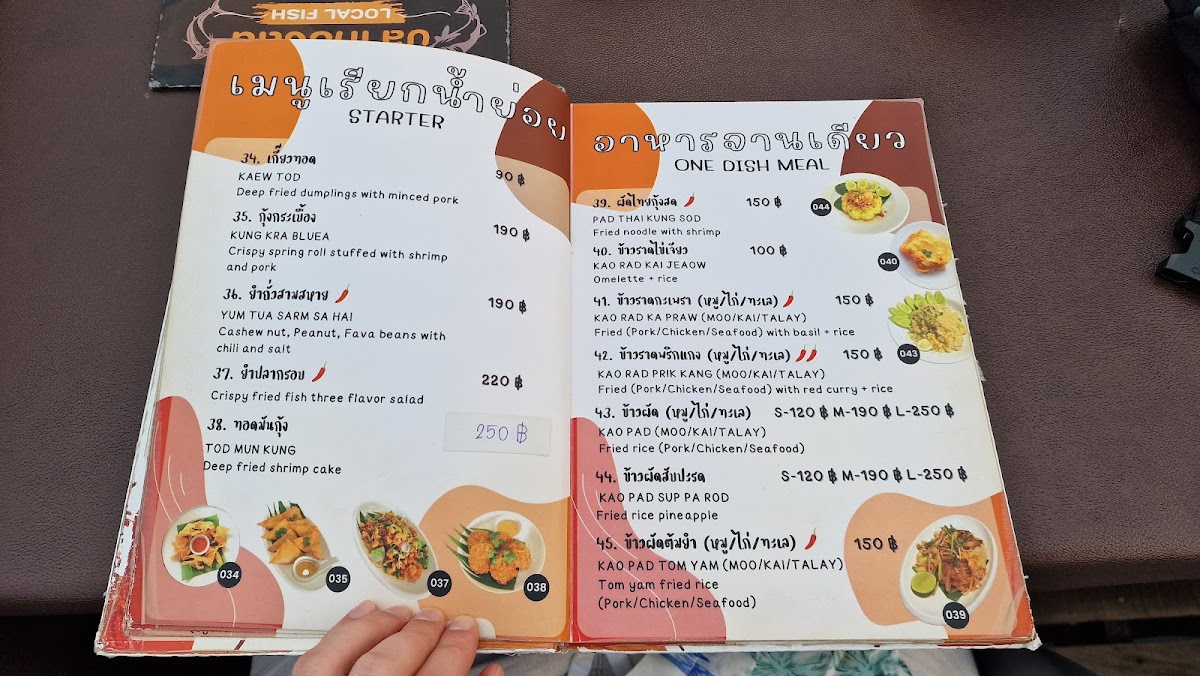 LOCAL FISH
เมนูเรียกน้ำย่อย
STARTER
34. เกี๊ยวทอด
KAEW TOD 90 ฿
Deep fried dumplings with minced pork
35. กุ้งกระเบื้อง
KUNG KRA BLUEA 190 ฿
Crispy spring roll stuffed with shrimp
and pork
36. ยำถั่วสามสหาย 190 ฿
YUM TUA SARM SA HAI
Cashew nut, Peanut, Fava beans with
chili and salt
37. ยำปลากรอบ 220 ฿
Crispy fried fish three flavor salad
38. ทอดมันกุ้ง 250 ฿
TOD MUN KUNG
Deep fried shrimp cake
034
035
037
038
อาหารจานเดียว
ONE DISH MEAL
39. ผัดไทยกุ้งสด 150 ฿
PAD THAI KUNG SOD
Fried noodle with shrimp
40. ข้าวราดไข่เจียว 100 ฿
KAO RAD KAI JEAOW
Omelette + rice
41. ข้าวราดกะเพรา (หมู/ไก่/ทะเล) 150 ฿
KAO RAD KA PRAW (MOO/KAI/TALAY)
Fried (Pork/Chicken/Seafood) with basil + rice
42. ข้าวราดพริกแกง (หมู/ไก่/ทะเล) 150 ฿
KAO RAD PRIK KANG (MOO/KAI/TALAY)
Fried (Pork/Chicken/Seafood) with red curry + rice
43. ข้าวผัด (หมู/ไก่/ทะเล) S-120 ฿ M-190 ฿ L-250 ฿
KAO PAD (MOO/KAI/TALAY)
Fried rice (Pork/Chicken/Seafood)
44. ข้าวผัดสับปะรด S-120 ฿ M-190 ฿ L-250 ฿
KAO PAD SUP PA ROD
Fried rice pineapple
45. ข้าวผัดต้มยำ (หมู/ไก่/ทะเล) 150 ฿
KAO PAD TOM YAM (MOO/KAI/TALAY)
Tom yam fried rice
(Pork/Chicken/Seafood)
044
040
043
039